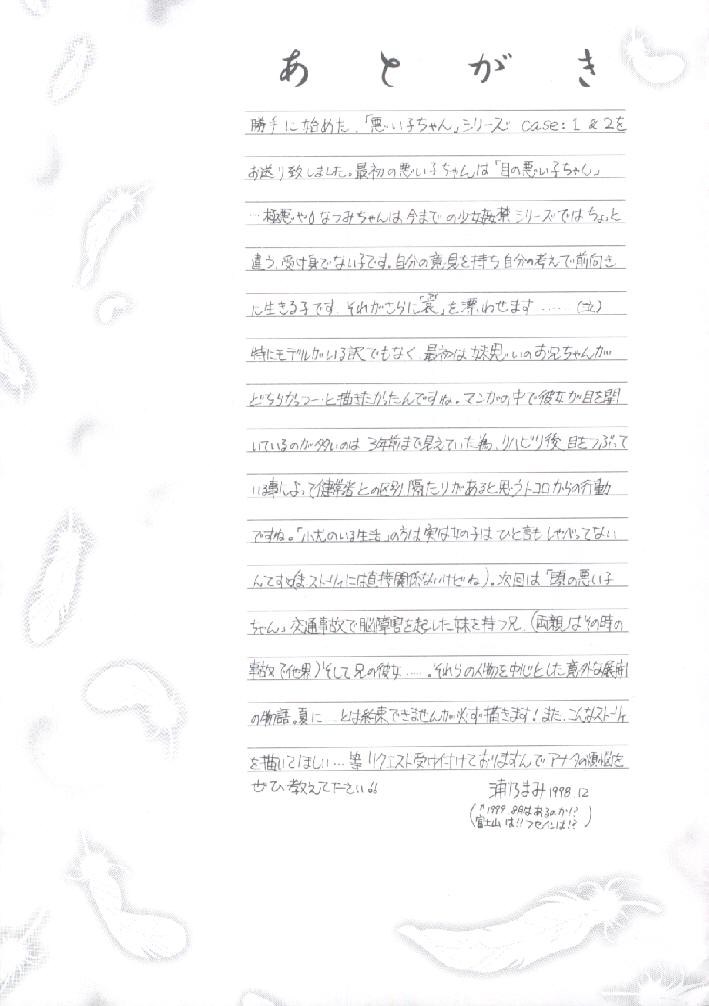 あとがき
勝手に始めた、「悪い子ちゃん」シリーズ case:1&2を
お送り致しました。最初の悪い子ちゃんは「目の悪い子ちゃん」
なつみちゃんは今までの少女姦禁シリーズではちょっと
違う、受け身でない子です。自分の意見を持ち自分の考えで前向き
に生きる子です。それがさらに「哀」を漂わせます……(泣)
特にモデルがいる訳でもなく 最初は妹思いのお兄ちゃんが
と描きたかったんですね。マンガの中で彼女が目を開
いているのが多いのは 3年前まで見えていた為、リハビリ後、目をつぶって
いる事によって健常者との区別 隔たりがあると思うトコロからの行動
ですね。「小犬のいる生活」の方は実は女の子は ひと言も しゃべってない
んですね(まあストーリィには直接関係ないけどね)。次回は「頭の悪い子
ちゃん」交通事故で脳障害を起した妹を持つ兄、(両親はその時の
事故で他界)そして兄の彼女……。それらの人物を中心とした意外な展開
の物語。夏に…とは約束できませんが必ず描きます!また、こんなストーリィ
を描いてほしい…等 リクエスト受け付けておりますんで アナタの煩悩を
ぜひ教えてください
浦乃まみ 1998.12
(↑1999 8月はあるのか!?
富士山は!! フセインは!?)